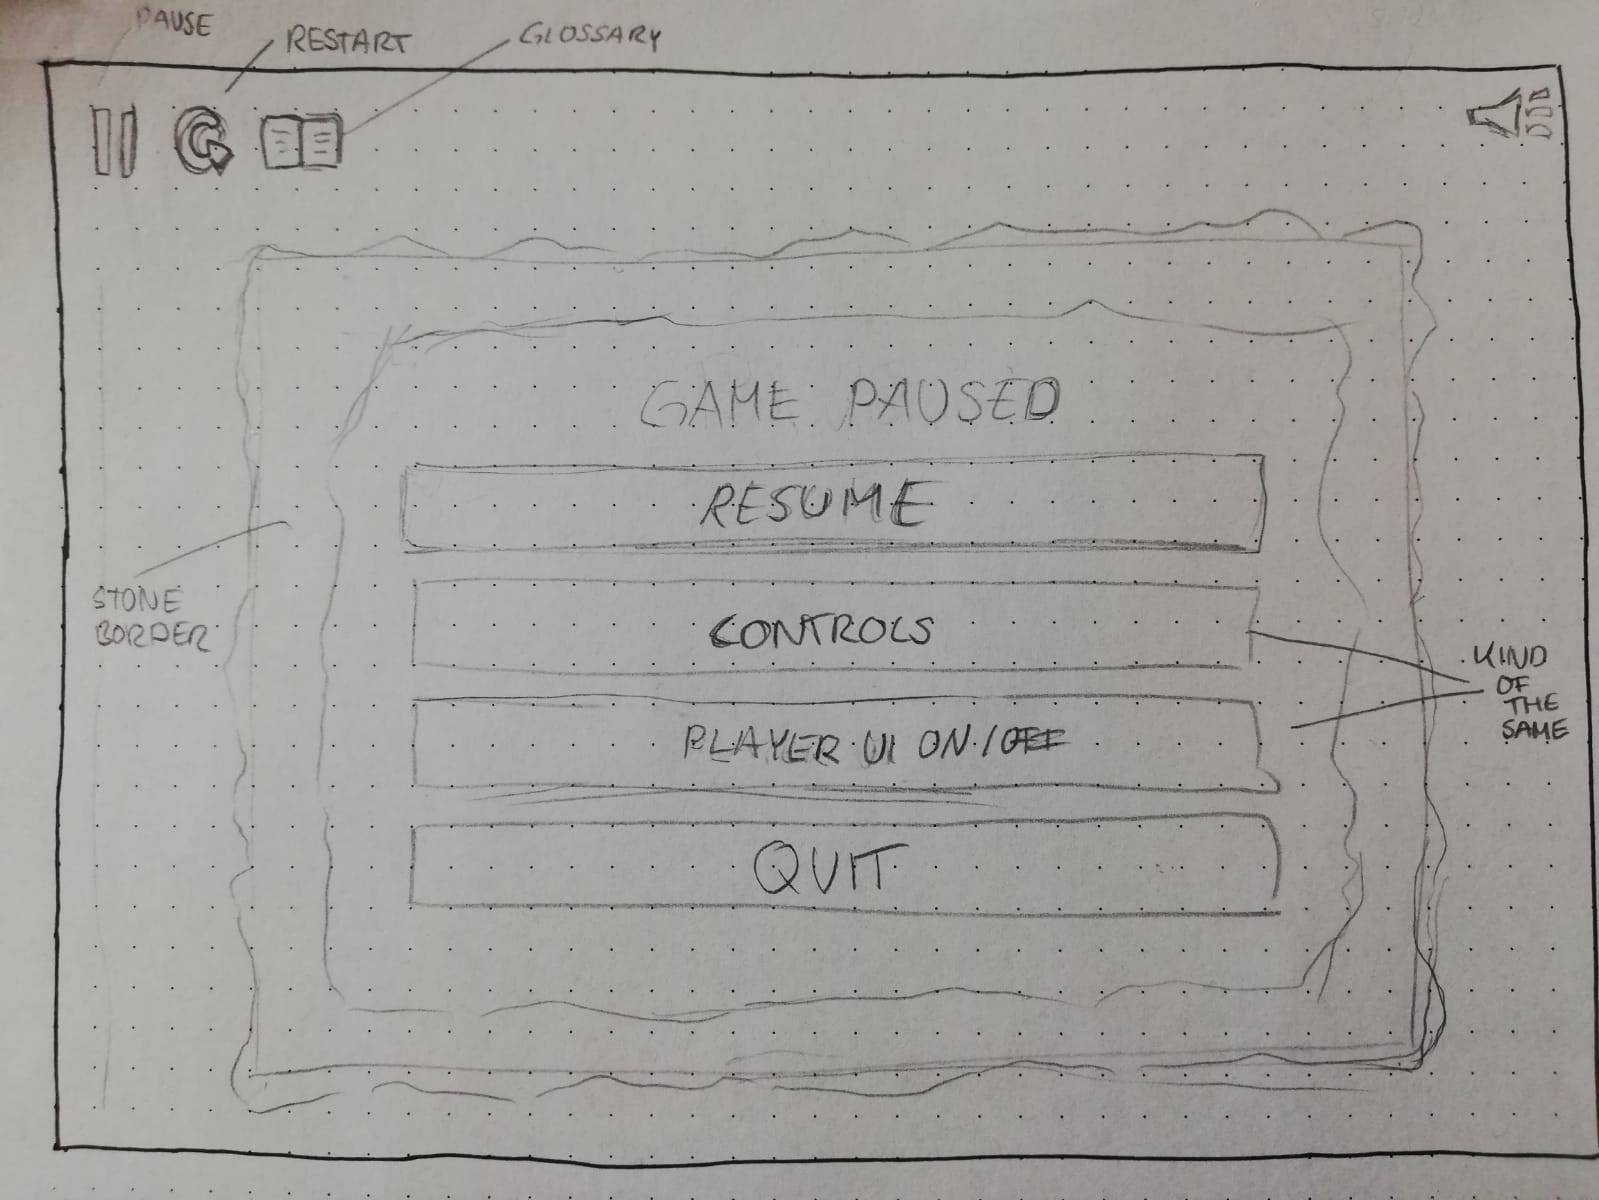 PAUSE
RESTART
GLOSSARY
GAME PAUSED
RESUME
CONTROLS
PLAYER UI ON/OFF
QUIT
STONE
BORDER
KIND
OF
THE
SAME